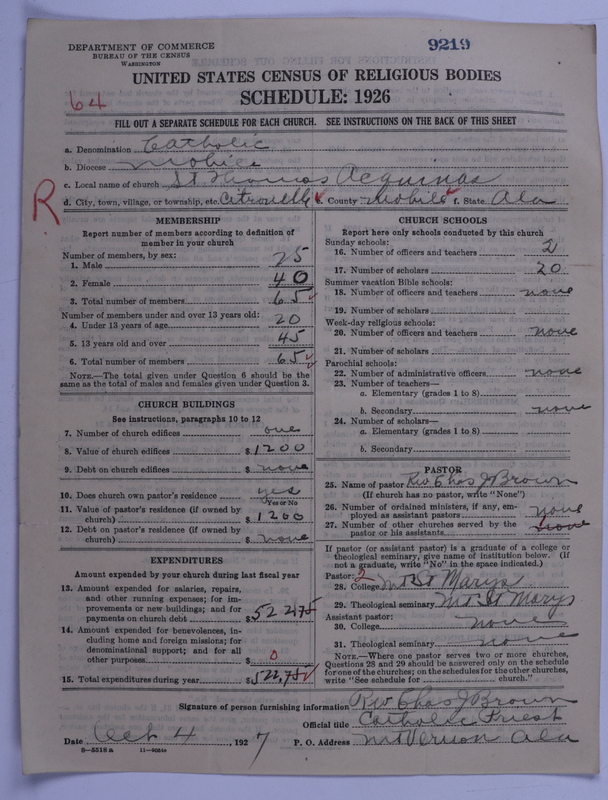 DEPARTMENT OF COMMERCE
BUREAU OF THE CENSUS
WASHINGTON
9219
UNITED STATES CENSUS OF RELIGIOUS BODIES
SCHEDULE: 1926
64
FILL OUT A SEPARATE SCHEDULE FOR EACH CHURCH. SEE INSTRUCTIONS ON THE BACK OF THIS SHEET
a. Denomination Catholic
b. Diocese Mobile
c. Local name of church St Thomas Acquinas
R
d. City, town, village, or township, etc. Citronelle County Mobile f. State Ala
MEMBERSHIP
Report number of members according to definition of
member in your church
Number of members, by sex:
1. Male 25
2. Female 40
3. Total number of members 65
Number of members under and over 13 years old:
4. Under 13 years of age 20
5. 13 years old and over 45
6. Total number of members 65
NOTE.—The total given under Question 6 should be the
same as the total of males and females given under Question 3.
CHURCH BUILDINGS
See instructions, paragraphs 10 to 12
7. Number of church edifices one
8. Value of church edifices $1200
9. Debt on church edifices $ none
10. Does church own pastor's residence yes
Yes or No
11. Value of pastor's residence (if owned by
church) $1200
12. Debt on pastor's residence (if owned by
church) $ none
EXPENDITURES
Amount expended by your church during last fiscal year
13. Amount expended for salaries, repairs,
and other running expenses; for im-
provements or new buildings; and for
payments on church debt $522.75
14. Amount expended for benevolences, in-
cluding home and foreign missions; for
denominational support; and for all
other purposes $ 0
15. Total expenditures during year $522,75
CHURCH SCHOOLS
Report here only schools conducted by this church
Sunday schools:
16. Number of officers and teachers 2
17. Number of scholars 20
Summer vacation Bible schools:
18. Number of officers and teachers none
19. Number of scholars
Week-day religious schools:
20. Number of officers and teachers none
21. Number of scholars
Parochial schools:
22. Number of administrative officers none
23. Number of teachers—
a. Elementary (grades 1 to 8)
b. Secondary none
24. Number of scholars—
a. Elementary (grades 1 to 8)
b. Secondary
PASTOR
25. Name of pastor Rev Chas J Brown
(If church has no pastor, write "None")
26. Number of ordained ministers, if any, em-
ployed as assistant pastors none
27. Number of other churches served by the
pastor or his assistants none
If pastor (or assistant pastor) is a graduate of a college or
theological seminary, give name of institution below. (If
not a graduate, write "No" in the space indicated.)
Pastor: 2
28. College Mt St Marys
29. Theological seminary Mt St Marys
Assistant pastor:
30. College none
31. Theological seminary none
NOTE.—Where one pastor serves two or more churches,
Questions 28 and 29 should be answered only on the schedule
for one of the churches; on the schedules for the other churches,
write "See schedule for church."
Signature of person furnishing information Rev Chas J Brown
Official title Catholic Priest
Date Oct 4, 1927 P. O. Address Mt Vernon Ala
8—5518a